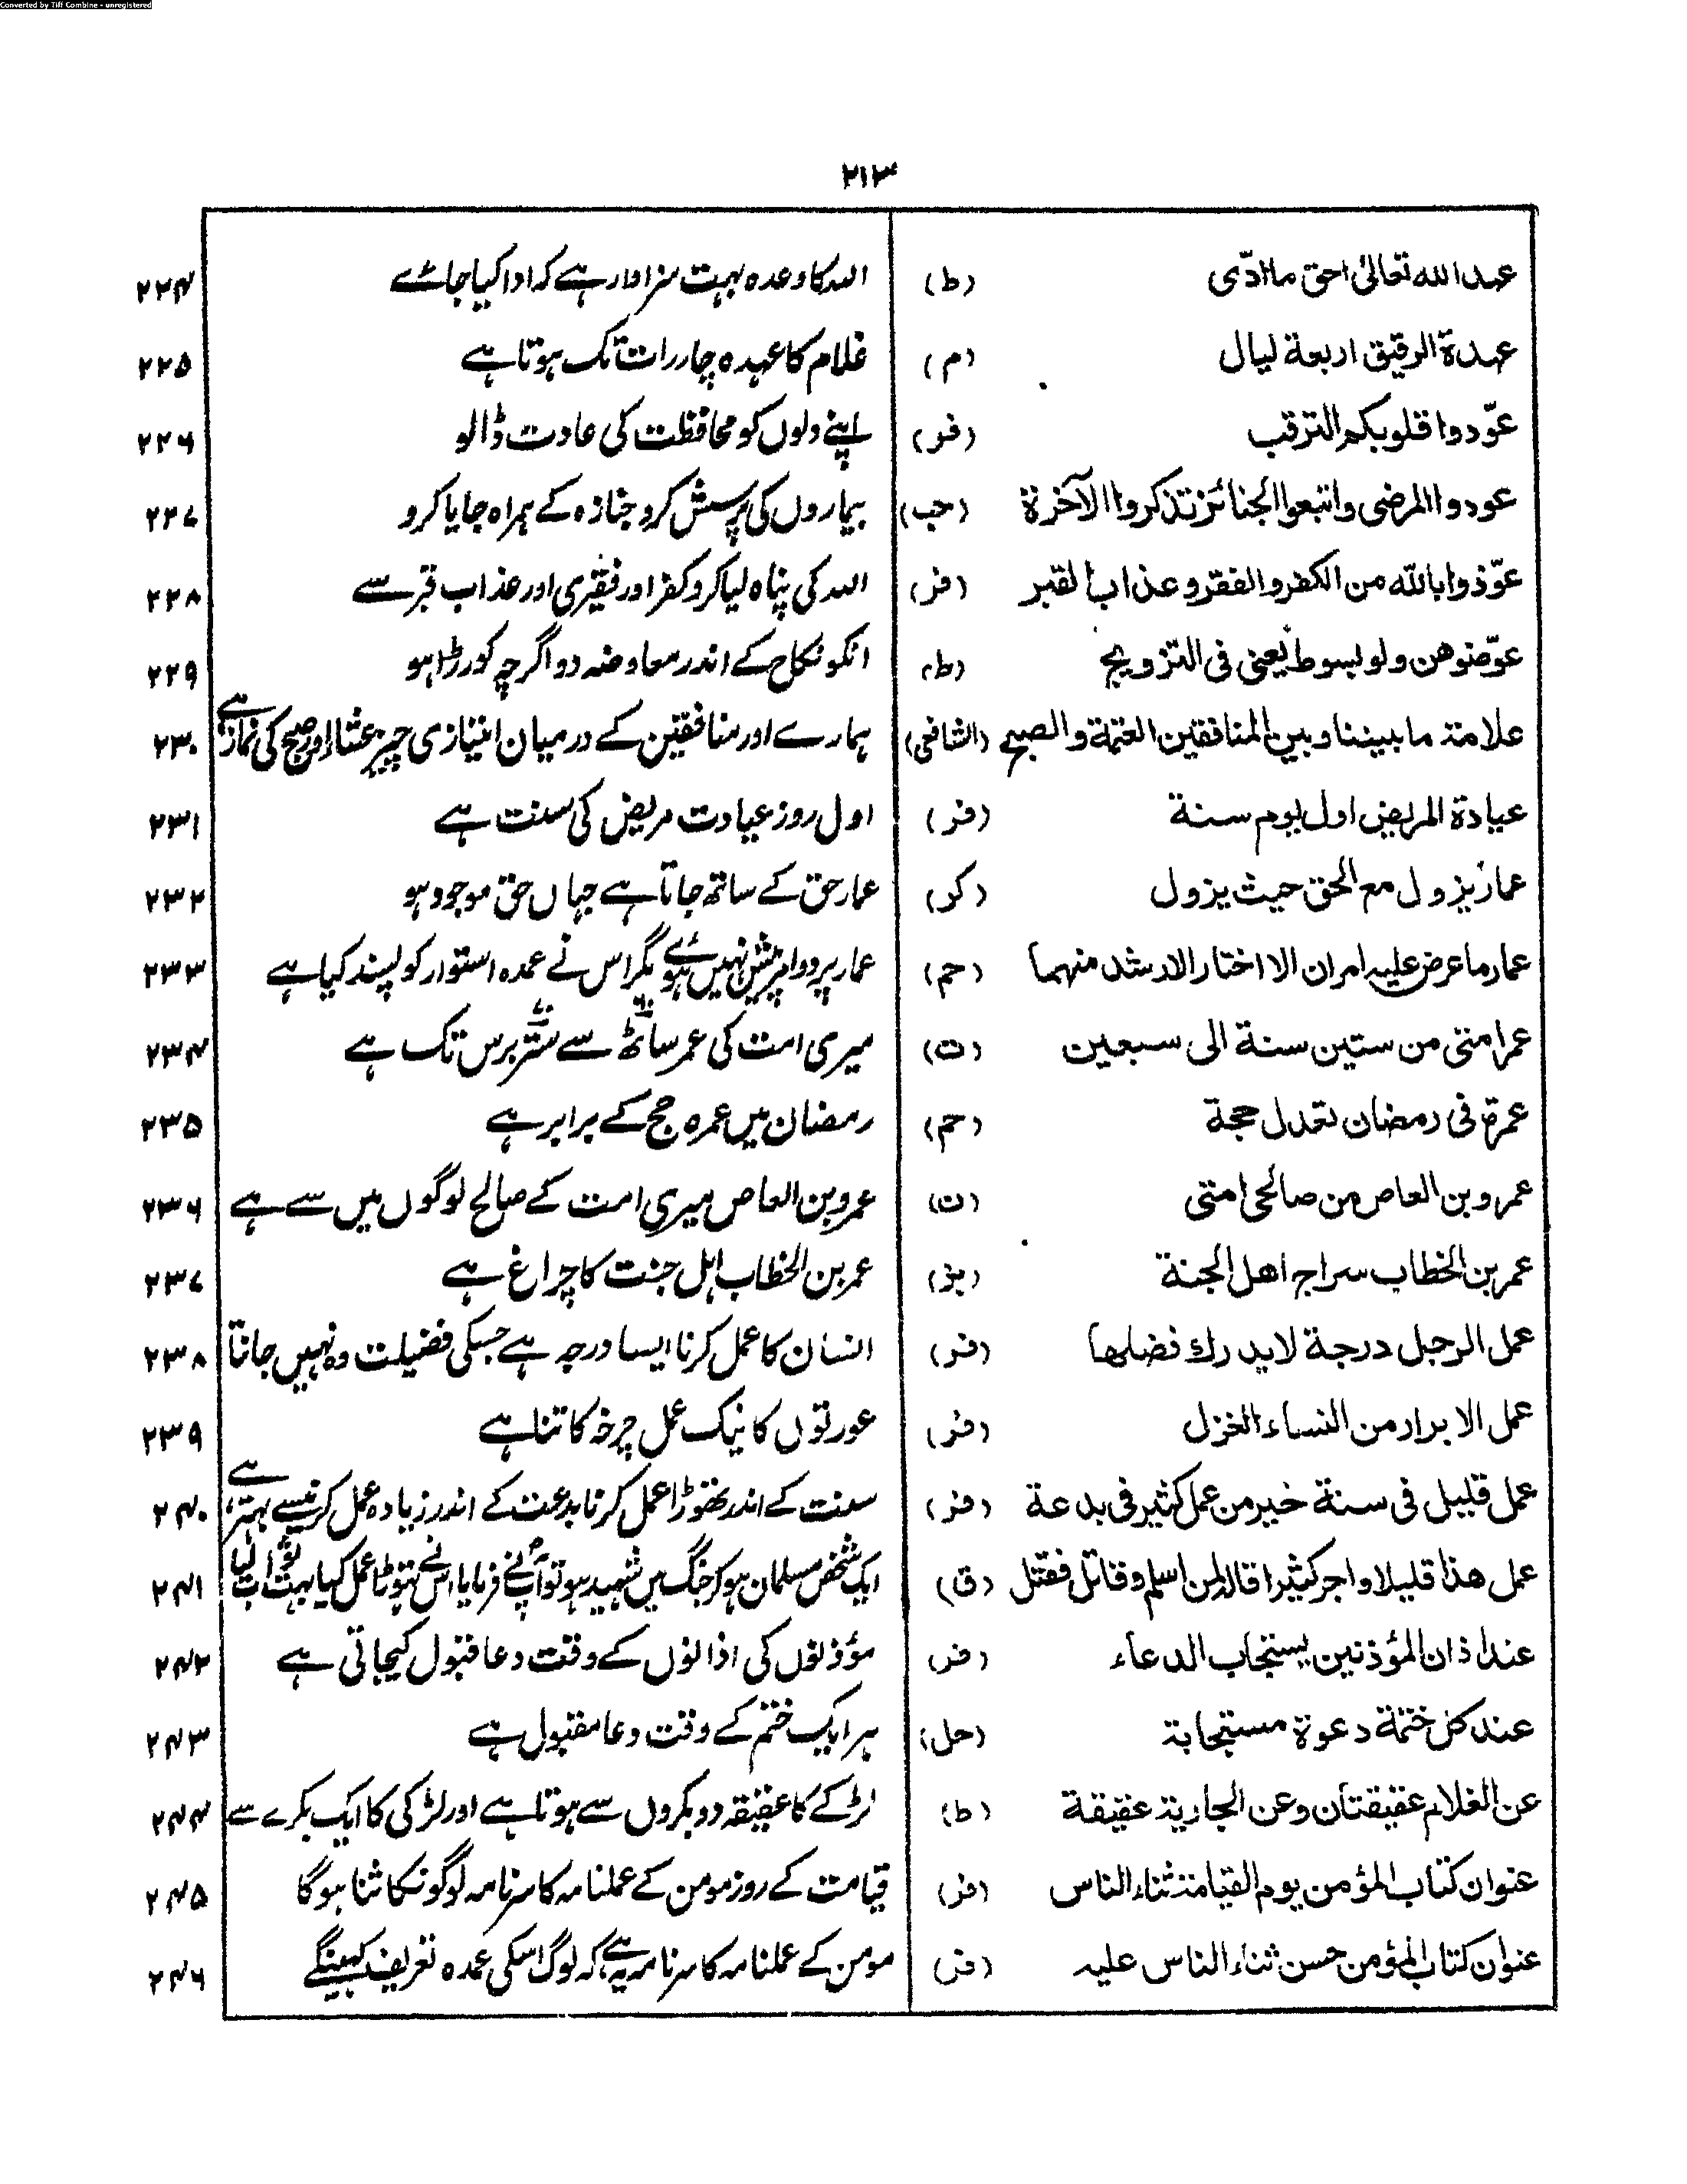 Converted by Tiff Combine - unregistered
۲۱۳
عہد اللہ تعالیٰ احق ما ادّی (ط) اللہ کا وعدہ بہت سزاوار ہے کہ ادا کیا جائے ۲۲۴
عہدة الرقیق اربعة لیال (م) غلام کا عہدہ چار رات تک ہوتا ہے ۲۲۵
عوّدوا قلوبکم الترقب (فر) اپنے دلوں کو محافظت کی عادت ڈالو ۲۲۶
عودوا المرضی واتبعوا الجنائز تذکروا الآخرة (حب) بیماروں کی پرسش کرو جنازہ کے ہمراہ جایا کرو ۲۲۷
عوّذوا باللہ من الکفر والفقر وعذاب القبر (فر) اللہ کی پناہ لیا کرو کفر اور فقیری اور عذاب قبر سے ۲۲۸
عوّضوهن ولو بسوط یعنی فی التزویج (ط) انکو نکاح کے اندر معاوضہ دو اگرچہ کوڑا ہو ۲۲۹
علامة ما بیننا وبین المنافقین العتمة والصبح (الشافعی) ہمارے اور منافقین کے درمیان امتیازی چیز عشاء اور صبح کی نماز ہے ۲۳۰
عیادة المریض اول یوم سنة (فر) اول روز عیادت مریض کی سنت ہے ۲۳۱
عمار یزول مع الحق حیث یزول (کر) عمار حق کے ساتھ جاتا ہے جہاں حق موجود ہو ۲۳۲
عمار ما عرض علیہ امران الا اختار الارشد منهما (حم) عمار پر دو امر پیش نہیں ہوئے مگر اس نے عمدہ استوار کو پسند کیا ہے ۲۳۳
عمر امتی من ستین سنة الی سبعین (ت) میری امت کی عمر ساٹھ سے ستّر برس تک ہے ۲۳۴
عمرة فی رمضان تعدل حجة (حم) رمضان میں عمرہ حج کے برابر ہے ۲۳۵
عمرو بن العاص من صالحی امتی (ت) عمرو بن العاص میری امت کے صالح لوگوں میں سے ہے ۲۳۶
عمر بن الخطاب سراج اهل الجنة (بز) عمر بن الخطاب اہل جنت کا چراغ ہے ۲۳۷
عمل الرجل درجة لا یدرك فضلها (فر) انسان کا عمل کرنا ایسا درجہ ہے جسکی فضیلت وہ نہیں جانتا ۲۳۸
عمل الابرار من النساء الغزل (فر) عورتوں کا نیک عمل چرخہ کاتنا ہے ۲۳۹
عمل قلیل فی سنة خیر من عمل کثیر فی بدعة (فر) سنت کے اندر تھوڑا عمل کرنا بدعت کے اندر زیادہ عمل کرنیسے بہتر ہے ۲۴۰
عمل هذا قلیلا واجر کثیرا قاله لمن اسلم وقاتل فقتل (ق) ایک شخص مسلمان ہوکر جنگ میں شہید ہو تو آپنے فرمایا اس نے تھوڑا عمل کیا بہت ثواب لیا ۲۴۱
عند اذان المؤذنین یستجاب الدعاء (فر) مؤذنوں کی اذانوں کے وقت دعا قبول کیجاتی ہے ۲۴۲
عند کل ختمة دعوة مستجابة (حل) ہر ایک ختم کے وقت دعا مقبول ہے ۲۴۳
عن الغلام عقیقتان وعن الجاریة عقیقة (ط) لڑکے کا عقیقہ دو بکروں سے ہوتا ہے اور لڑکی کا ایک بکرے سے ۲۴۴
عنوان کتاب المؤمن یوم القیامة ثناء الناس (فر) قیامت کے روز مومن کے عملنامہ کا سرنامہ لوگونکا ثنا ہوگا ۲۴۵
عنوان کتاب المؤمن حسن ثناء الناس علیہ (فر) مومن کے عملنامہ کا سرنامہ یہ ہے کہ لوگ اسکی عمدہ تعریف کہینگے ۲۴۶